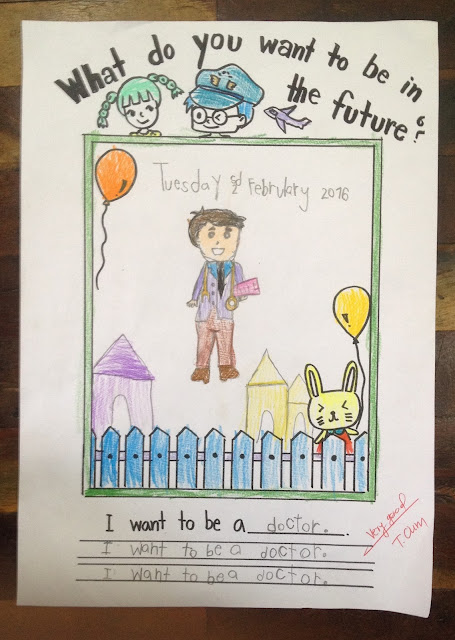 What do you want to be in
the future?
Tuesday 2nd Februrary 2016
I want to be a doctor.
I want to be a doctor.
I want to be a doctor.
Very good
T.